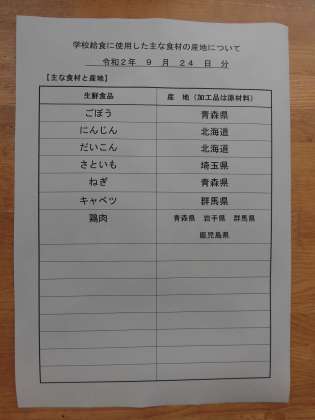 学校給食に使用した主な食材の産地について
令和2年 9 月 24 日 分
【主な食材と産地】
生鮮食品 産 地（加工品は原材料）
ごぼう 青森県
にんじん 北海道
だいこん 北海道
さといも 埼玉県
ねぎ 青森県
キャベツ 群馬県
鶏肉 青森県 岩手県 群馬県
鹿児島県